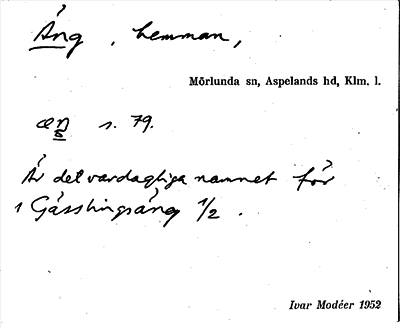 Äng, hemman,
Mörlunda sn, Aspelands hd, Klm. l.
æŋ s. 79.
Är det vardagliga namnet för
1 Gässlingsäng 1/2.
Ivar Modéer 1952